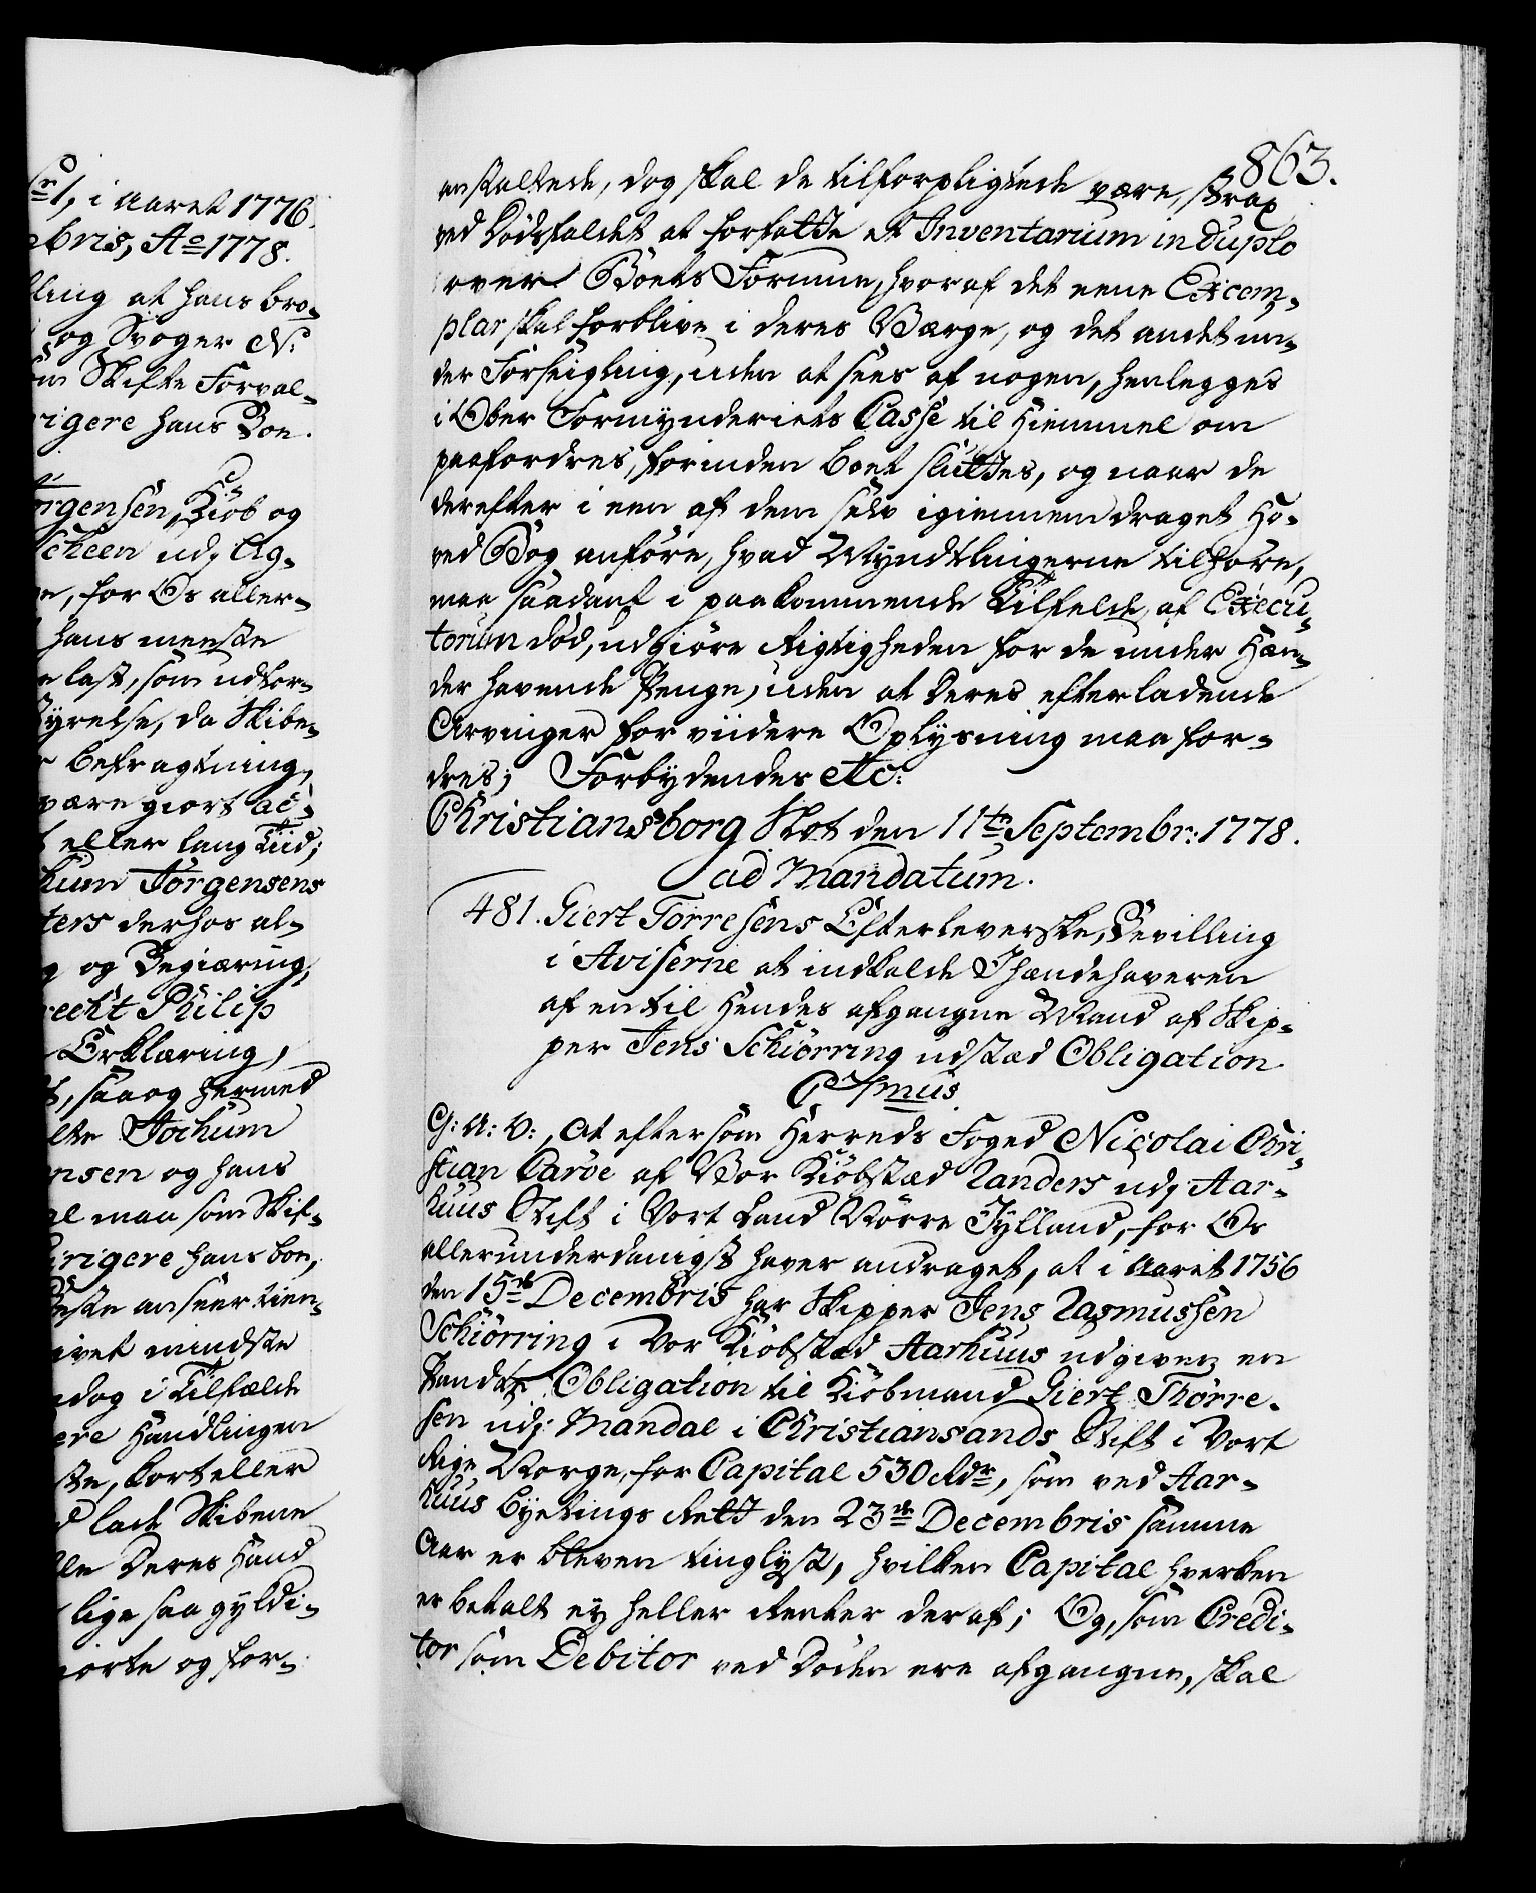 rdt, i Aaret 1776.
ebris, Ao 1778.
lling at hans bro-
og Svoger N:
Skifte Forval-
rigere hans Boe.
ørgensen, Kiøb og
Scheen udj Ag-
for Os aller-
hans meeste
last, som udfor-
tyrelse, da Skibe-
befragtning,
være giort ac-
eller lang Tiid;
hum Jørgensens
ters derhos al-
og Begiæring,
recht Philip
Erklæring,
saa og hermed
lte Jochum
ensen og hans
maa som Skif-
irigere hans boe,
beste anseer tien-
mindste
dog i Tilfælde
ere Handlingen
kort eller
lade Skibene
Deres Haand
lige saa gyldi-
giorte og for-
863.
anstaltede, dog skal de tilforpligtede være, strax
ved Dødsfaldet at forfatte et Inventarium in duplo
over Boets Formue, hvoraf det eene Exem-
plar skal forblive i deres Værge, og det andet un-
der Forseigling, uden at sees af nogen, henlegges
i Over Formynderiets Casse til Hiemmel om
paafordres, forinden boet sluttes, og naar de
derefter i een af dem selv igiennemdraget Ho-
ved Bog anføre, hvad Myndtlingerne tilhøre,
maa saadant i paakommende Tilfelde af Execu-
torum død, udgiøre Rigtigheden for de under Hæn-
der havende Penge, uden at deres efterladende
Arvinger for viidere Oplysning maa for-
dres; Forbydendes etc:
Christiansborg Slot den 11te Septembr: 1778.
ad Mandatum.
481. Giert Torresens Efterleverske, Bevilling
i Aviserne at indkalde Ihændehaveren
af en til Hendes afgangne Mand af Skip-
per Jens Schiørring udstæd Obligation.
C 7mus.
G: A: V:, At eftersom Herreds Foged Nicolai Chri-
stian Carøe af Vor Kiøbstæd Randers udj Aar-
huus Stift i Vort Land Nørre Jylland, for Os
allerunderdanigst haver andraget, at i Aaret 1756
den 15de Decembris har Skipper Jens Rasmussen
Schiørring i Vor Kiøbstæd Aarhuus udgivet en
Pandte Obligation til Kiøbmand Giert Thorre-
sen udj Mandal i Christiansands Stift i Vort
Rige Norge, for Capital 530 Rdr, som ved Aar-
huus Byetings Rett den 23de Decembris samme
Aar er bleven tinglyst, hvilken Capital hverken
er betalt ey heller Renter deraf; Og, som Credi-
tor som Debitor ved Døden ere afgangne, skal